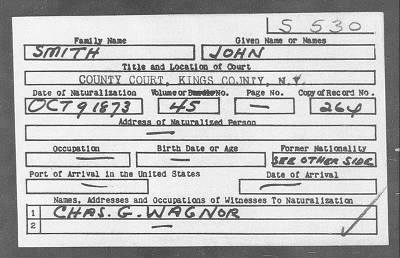 S 530
Family Name Given Name or Names
SMITH JOHN
Title and Location of Court
COUNTY COURT, KINGS COUNTY, N.Y.
Date of Naturalization Volume or Bundle No. Page No. Copy of Record No.
OCT 9 1873 45 — 264
Address of Naturalized Person
—
Occupation Birth Date or Age Former Nationality
— — SEE OTHER SIDE
Port of Arrival in the United States Date of Arrival
— —
Names, Addresses and Occupations of Witnesses To Naturalization
1 CHAS. G. WAGNOR
2 —